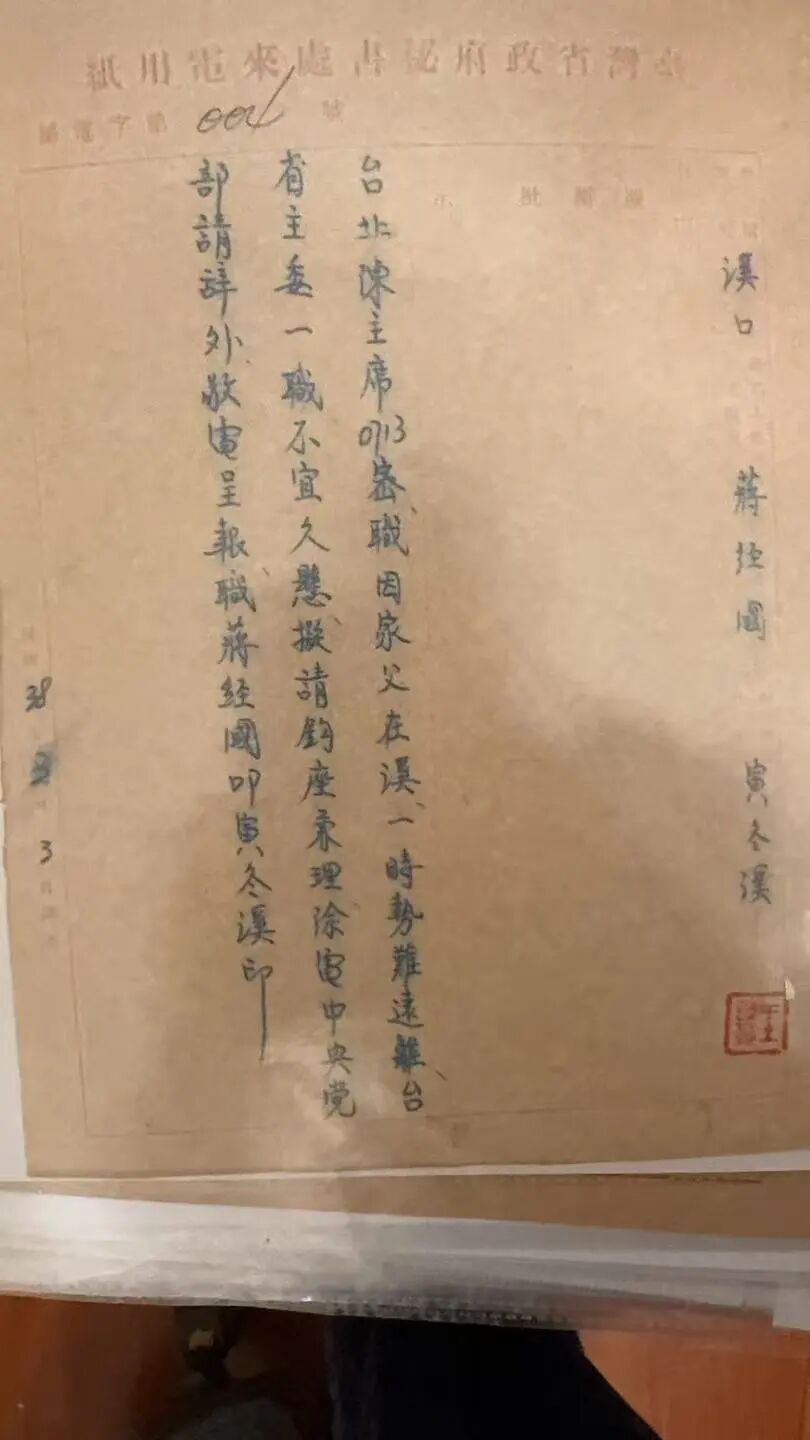 臺灣省政府秘書處來電用紙
電字第 004 號
擬辦 批示
溪口 蔣经國 寅冬溪
台北陳主席0713密、職因家父在溪、一時勢難遠離、台
省主委一職不宜久懸、擬請鈞座兼理、除電中央党
部請辞外、敬電呈報、職蔣经國叩寅冬溪印
38 3 3